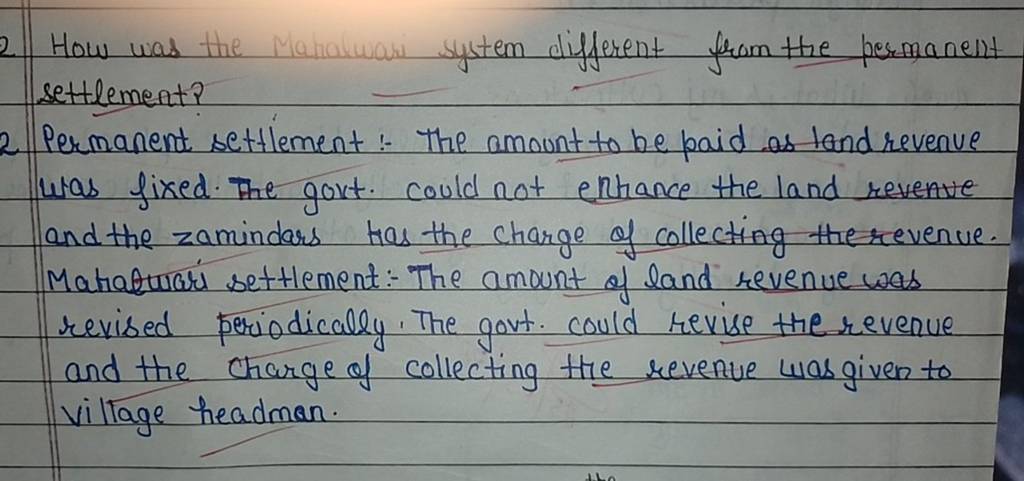 2 How was the Mahalwari system different from the permanent
settlement?
2 Permanent settlement :- The amount to be paid as land revenue
was fixed. The govt. could not enhance the land revenue
and the zamindars has the charge of collecting the revenue.
Mahalwari settlement:- The amount of land revenue was
revised periodically. The govt. could revise the revenue
and the charge of collecting the revenue was given to
village headman.
the